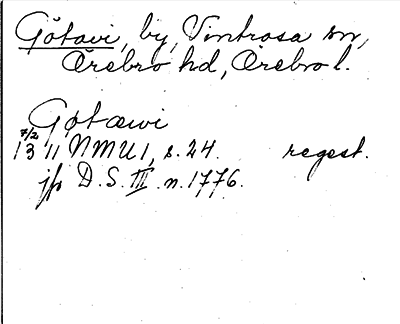 Götavi, by, Vintrosa sn,
Örebro hd, Örebro l.
Gøtæwi
7/2
13 11 NMU 1, s. 24. regest.
jfr D.S. III n. 1776.